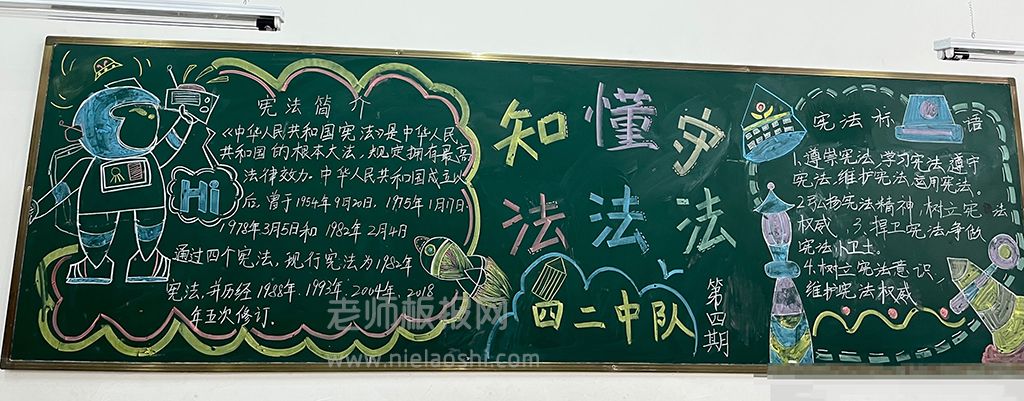 宪法简介
《中华人民共和国宪法》是中华人民
共和国的根本大法，规定拥有最高
法律效力。中华人民共和国成立以
后，曾于1954年9月20日、1975年1月17日、
1978年3月5日和1982年2月4日
通过四个宪法，现行宪法为1982年
宪法，并历经1988年、1993年、2004年、2018
年五次修订。
Hi
知懂守
法法法
四二中队
第四期
宪法标语
1、尊崇宪法、学习宪法、遵守
宪法、维护宪法、运用宪法。
2、弘扬宪法精神，树立宪法
权威，3、捍卫宪法，争做
宪法小卫士。
4、树立宪法意识，
维护宪法权威
老师板报网
www.nielaoshi.com